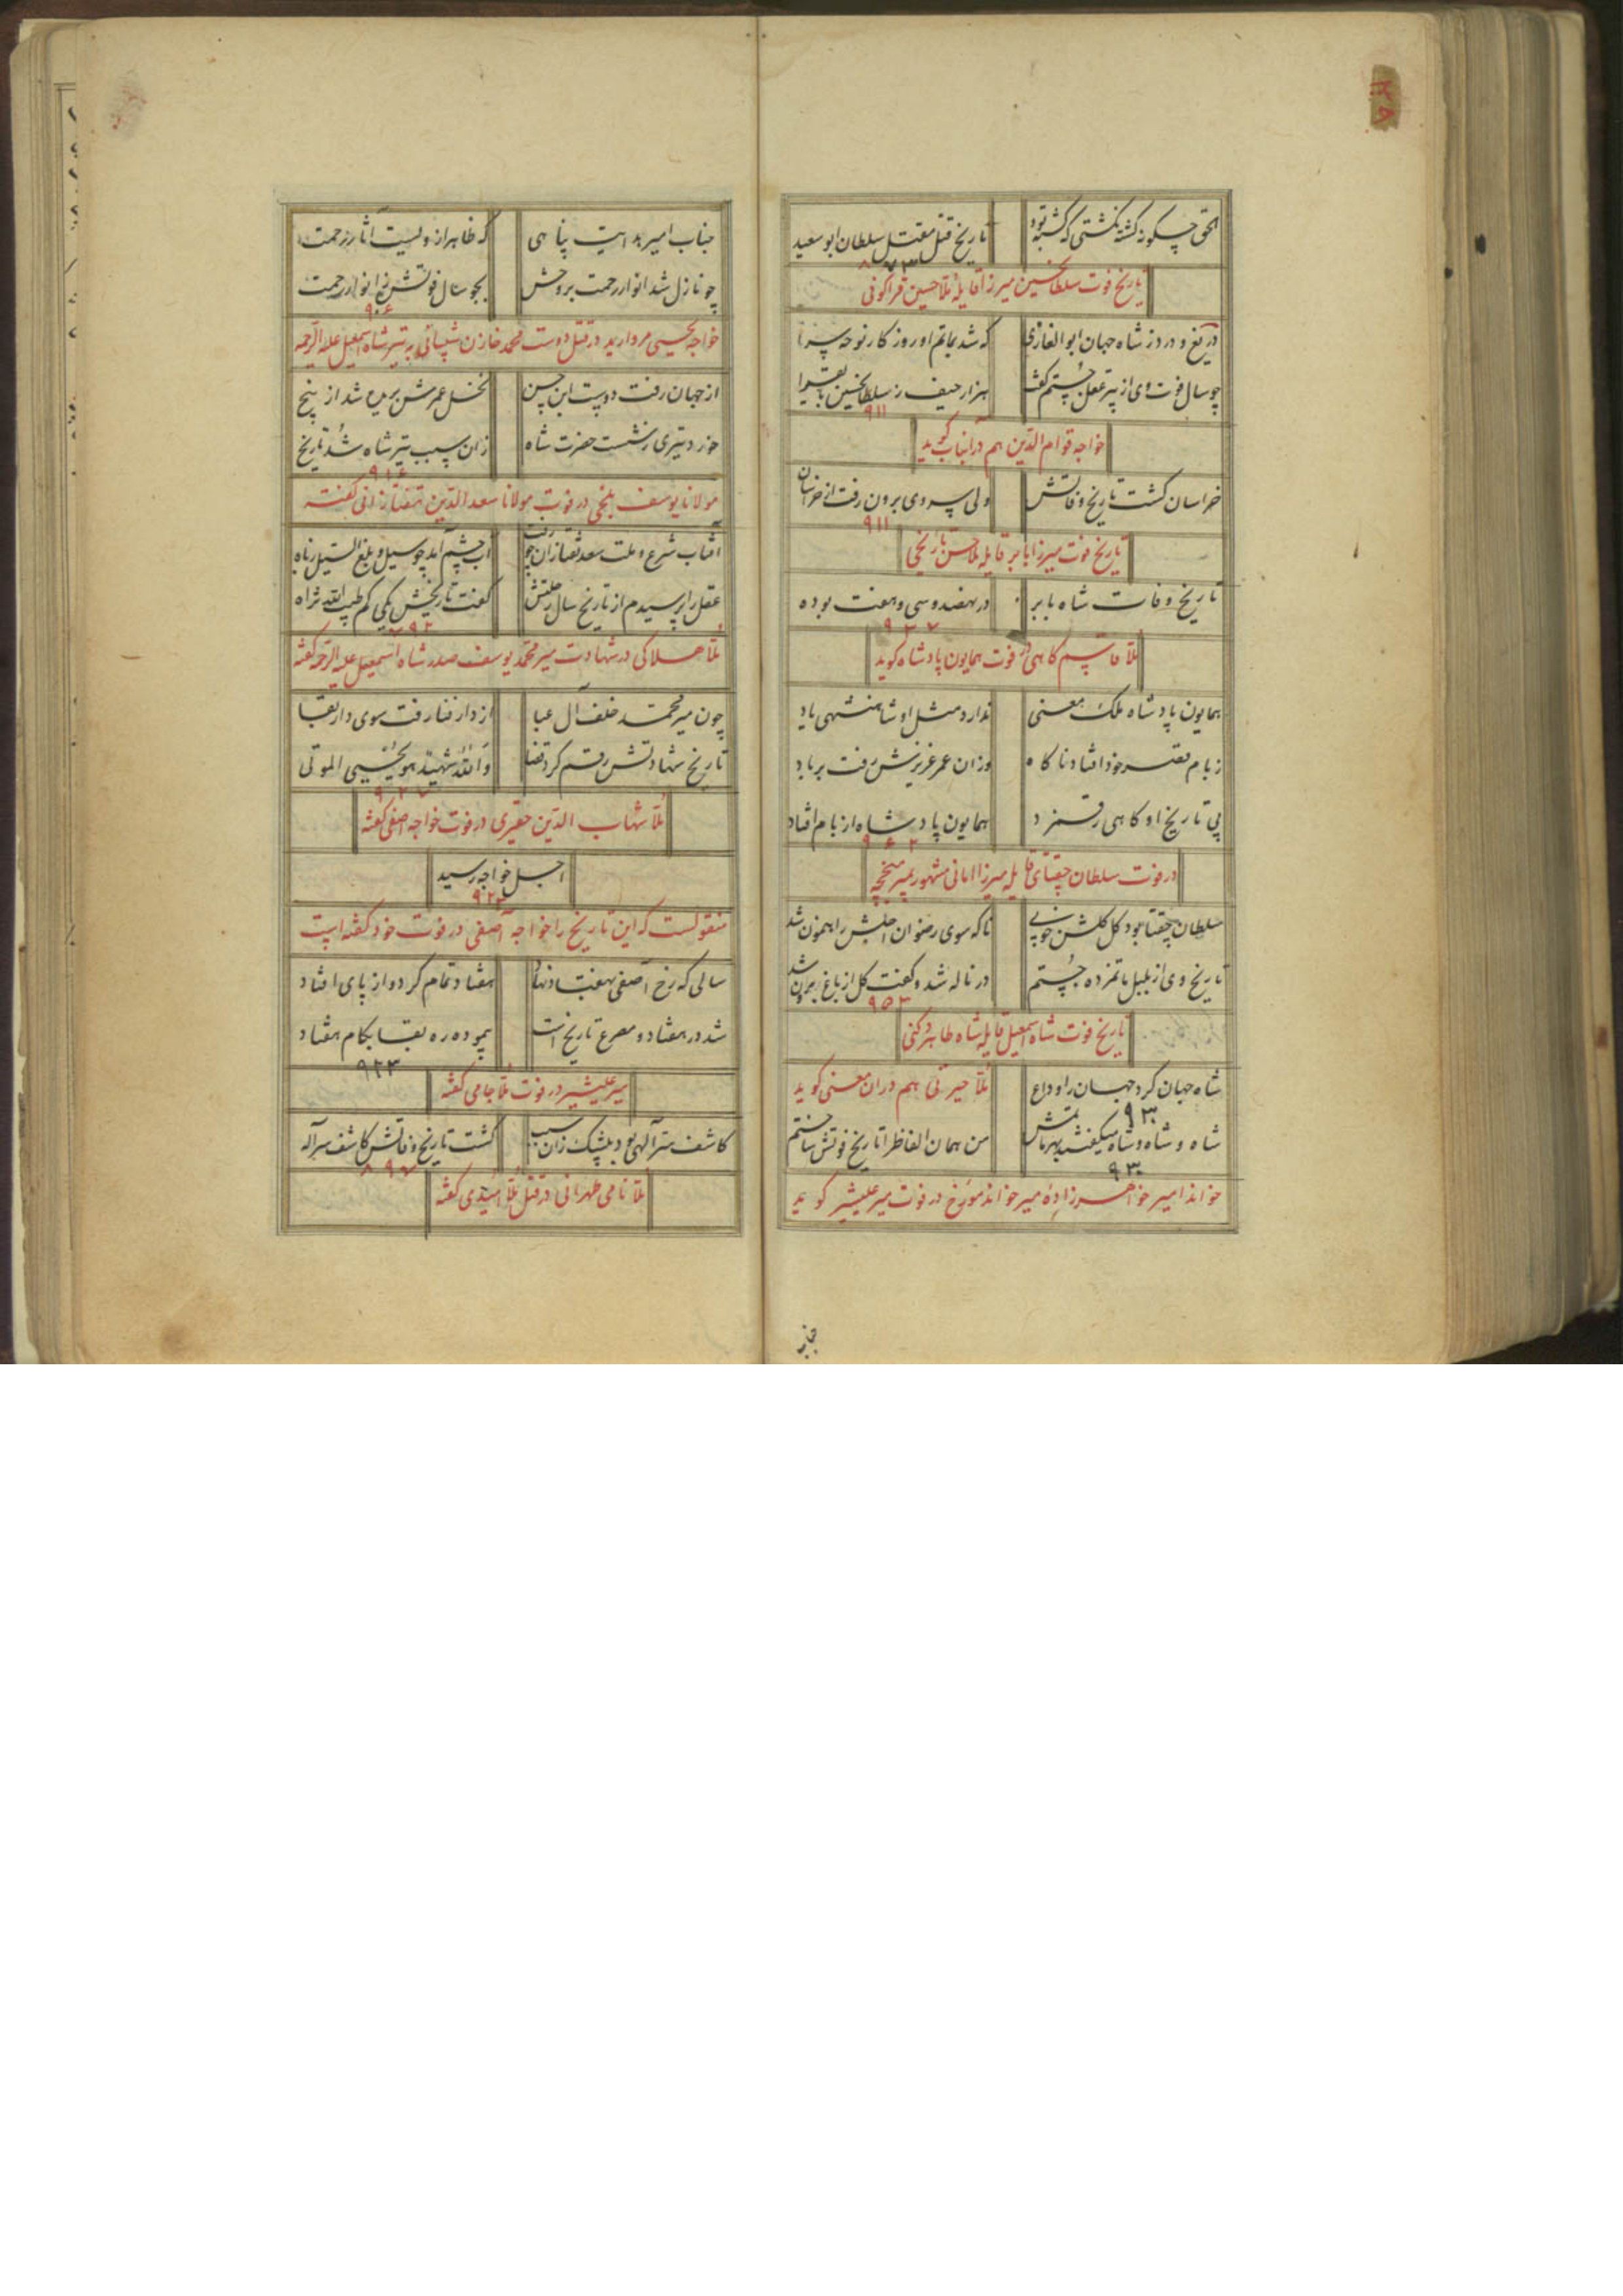 ۳۵
الحق چگونه کشته نگشتی که گشته بود
تاریخ قتل مقتل سلطان ابو سعید
۸۷۳
تاریخ فوت سلطانحسین میرزا قایله ملا حسین قراکونی
دریغ و درد ز شاه جهان ابو الغازی
که شد بماتم او روز کار نوحه سرا
چو سال فوت وی از پیر عقل جستم گفت
هزار حیف ز سلطانحسین بایقرا
۹۱۱
خواجه قوام الدین هم در آنباب گوید
خراسان گشت تاریخ وفاتش
ولی پروی برون رفت از خراسان
۹۱۱
تاریخ فوت میرزا بابر قایله ملا حسن تاریخی
تاریخ وفات شاه بابر
در نهصد و سی و هفت بوده
۹۳۷
ملا قاسم کاهی در فوت همایون پادشاه گوید
همایون پادشاه ملک معنی
ندارد مثل او شاهنشهی یاد
ز بام قصر خود افتاد ناکاه
وزان عمر عزیزش رفت بر باد
پی تاریخ او کاهی رقم زد
همایون پادشاه از بام افتاد
۹۶۲
در فوت سلطان چقتای قایله میرزا امانی مشهور بمیر
سلطان چقتا بود کل کلشن خوبی
ناکه سوی رضوان اجلش راهنمون شد
تاریخ وی از بلبل ماتمزده جستم
در ناله شد و گفت کل از باغ برون شد
۹۵۳
تاریخ فوت شاه اسمعیل قایله شاه طاهر دکنی
شاه جهان کرد جهان را وداع
۹۳۰
ملا حیرتی هم در آن معنی گوید
شاه و شاه و شاه میگفتند بهر ماتمش
من همان الفاظ را تاریخ فوتش ساختم
۹۳۰
خواند امیر خواهرزاده میر خواند مورخ در فوت میر علیشیر گوید
جناب
جناب امیر هدایت پناهی
که ظاهر ازو لیست آثار رحمت
چو نازل شد انوار رحمت بروحش
بجو سال فوتش ز انوار رحمت
۹۰۶
خواجه یحیی مروارید در قتل دوست محمد خازن شیبانی به تیر شاه اسمعیل علیه الرحمه
از جهان رفت دوست ابن حسن
نخل عمرش بریده شد از بیخ
خورد تیری ز شست حضرت شاه
زان سبب تیر شاه شد تاریخ
۹۱۶
مولانا یوسف بلخی در فوت مولانا سعد الدین تفتازانی گفته
آفتاب شرع و ملت سعد تفتازان چو رفت
آب چشم آمد چو سیل و بلغ السیل زباه
عقل را پرسیدم از تاریخ سال رحلتش
گفت تاریخش یکی کم طیب الله ثراه
۷۹۲
ملا هلاکی در شهادت میر محمد یوسف صدر شاه اسمعیل علیه الرحمه گفته
چون میر محمد خلف آل عبا
از دار فنا رفت سوی دار بقا
تاریخ شهادتش رقم کرد قضا
والله شهید هو یحیی الموتی
۹۲۷
ملا شهاب الدین حقیری در فوت خواجه آصفی گفته
اجل خواجه رسید
۹۲۳
منقولست که این تاریخ را خواجه آصفی در فوت خود گفته است
سالی که رخ آصفی بهفتاد نهاد
هفتاد تمام کرد و از پای افتاد
شد در هفتاد و مصرع تاریخ است
پیموده ره بقا بکام هفتاد
۹۲۳
میر علیشیر در فوت ملا جامی گفته
کاشف سر آلهی بود بیشک زان سبب
گشت تاریخ وفاتش کاشف سر آله
۸۹۷
ملا نامی طهرانی در قتل ملا امیدی گفته